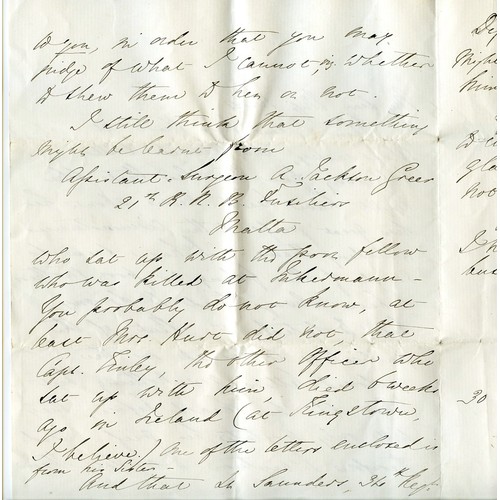 to you, in order that you may
judge of what I cannot, viz whether
to shew them to her or not.
I still think that something
might be learnt from
Assistant-Surgeon A. Jackson Greer
21st R. N. B. Fusiliers
Malta
who sat up with the poor fellow
who was killed at Inkermann -
You probably do not know, at
least Mrs. Hunt did not, that
Capt. Finley, the other Officer who
sat up with him, died 6 weeks
ago in Ireland (at Kingstown,
I believe.) One of the letters enclosed is
from his Sister -
And that Lt Saunders 34th Regt
might
him
not
30